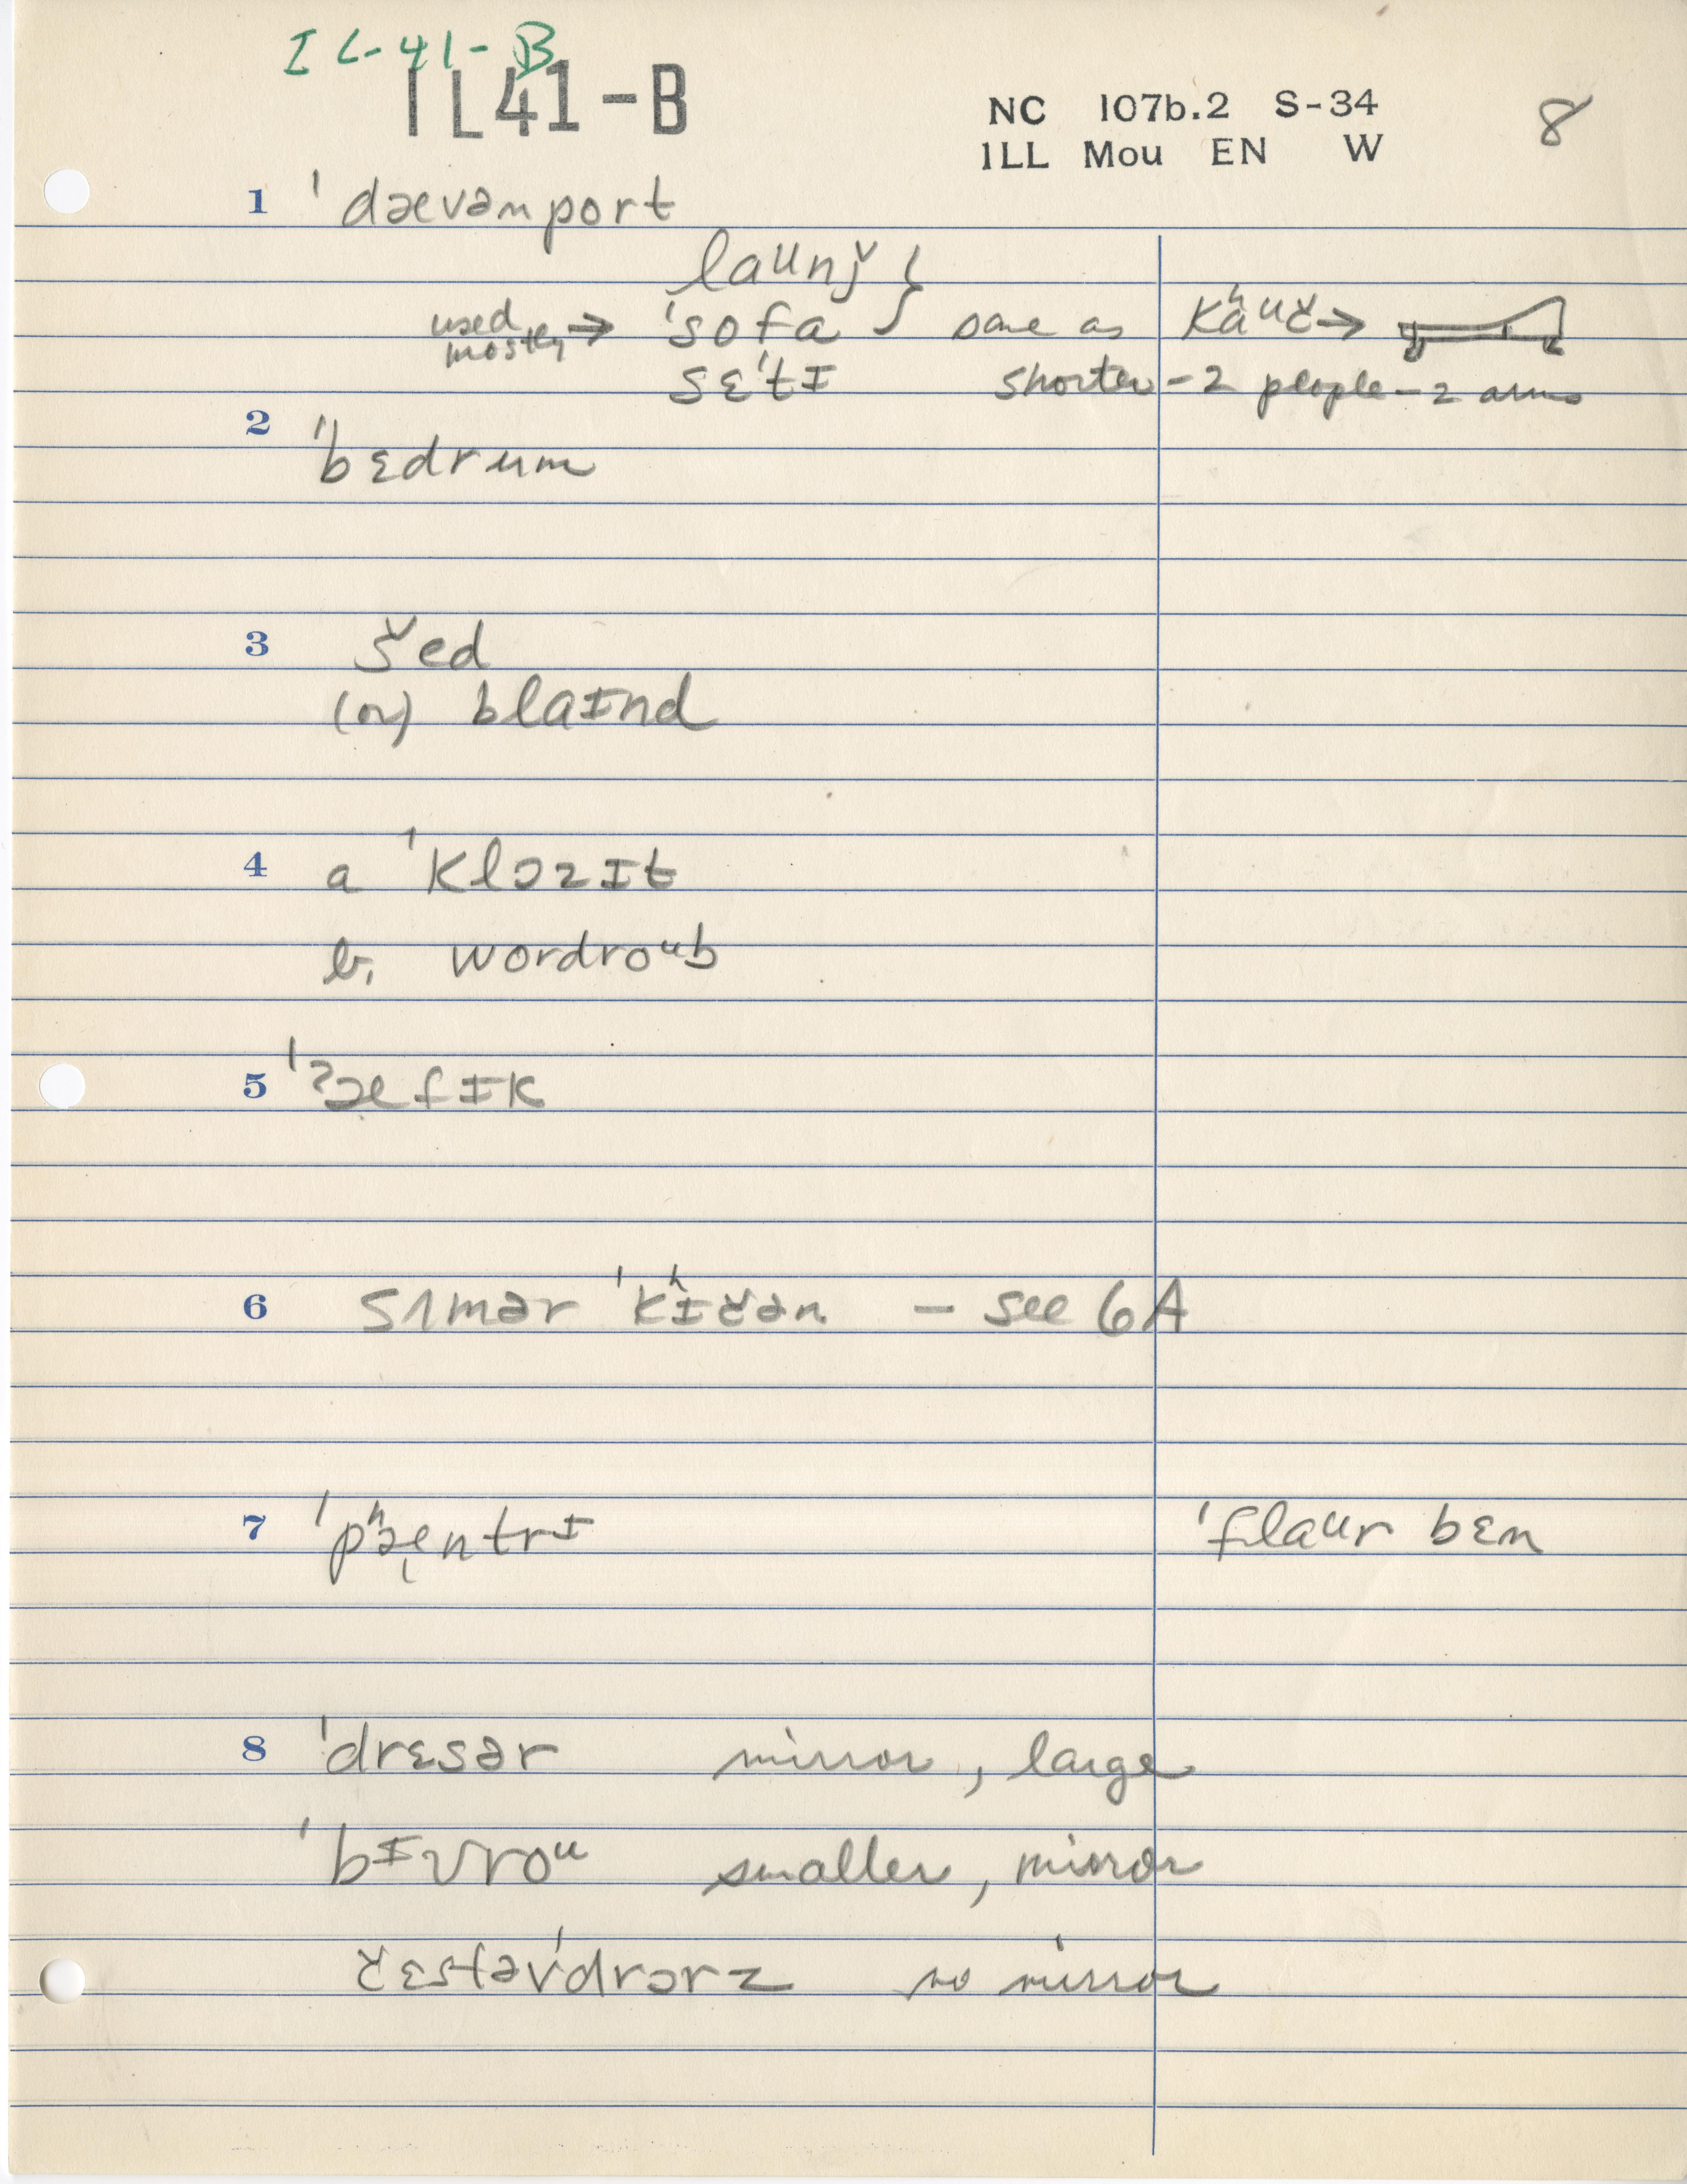 IL-41-B
IL41-B
NC 107b.2 S-34
ILL Mou EN W
8
1 ˈdævəmport
lauǌ̌ }
used mostly → ˈsofa } same as kʰaᵘč →
sɛˈtɪ shorter - 2 people - 2 arms
2 ˈbɛdrum
3 šed
(or) blaɪnd
4 a ˈklɔzɪt
b. wordroᵘb
5 ˈʔæfɪk
6 sʌmər ˈkʰɪčən - see 6A
7 ˈpʰæ̨ntrɪ ˈflaᵘr bɛn
8 ˈdrɛsər mirror, large
ˈbɪʊroᵘ smaller, mirror
čɛstəvˈdrɔrz no mirror